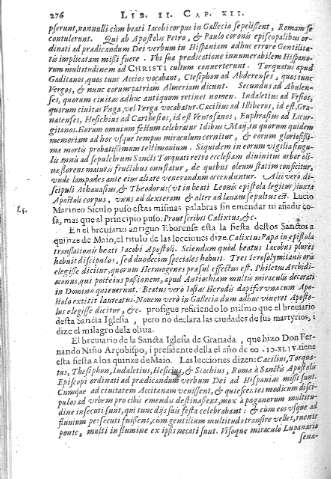 276 LIB. II. CAP. XII.
pserunt, nonnulli cùm beati Iacobi corpus in Gallecia sepelissent, Romam se
contulerunt. Qui ab Apostolis Petro, & Paulo coronis episcopalibus or-
dinati ad prædicandum Dei verbum in Hispaniam adhuc errore Gentilita-
tis implicatam missi fuere. Ibi sua prædicatione innumerabilem Hispano-
rum multitudinem ad CHRISTI cultum converterunt. Torquatus apud
Gaditanos, quos tunc Accios vocabant, Ctesiphon ad Abderenses, quos tunc
Vergos, & nunc eorum patriam Almeriam dicunt. Secundus ad Abulen-
ses, quorum civitas adhuc antiquum retinet nomen. Indaletius ad
quorum civitas Vrsa, vel Verga vocabatur. Cæcilius ad Iliberos, id est, Gra-
natenses, Hesichius ad Carthesios, id est Euphrasius ad Litur-
gitanos. Eorum omnium festum celebratur Idibus Maij, in quorum quidem
memoriam ad hoc usque tempus miraculum cernitur, & eorum gloriosissi-
mæ mortis probatissimum testimonium. Siquidem in eorum vigilia singu-
lis annis ad sepulchrum Sancti Torquati retro ecclesiam divinitus arbor oli-
maturis fructibus constare, de quibus oleum statim conficitur,
unde lampades ante eius altare venerandum Alij verò di-
scipuli Athanasius, & Theodorus (ut in beati Leonis epistola legitur) iuxta
Apostoli corpus, unus ad dexteram & alter ad lævam sepultus est. Lucio
Marineo Siculo puso estas mismas palabras sin enmendar ni añadir co-
sa, mas que al principio puso. Prout scribit Calixtus, &c.
En el breuiario antiguo Eborense esta la fiesta destos Sanctos a
quinze de Mayo, el titulo de las lecciones dize. Calixtus Papa in epistola
translationis beati Iacobi Apostoli. Sciendum quòd beatus Iacobus plures
habuit discipulos, sed duodecim speciales habuit. Tres Ierosolymitanis oris
elegisse dicitur, quorum Hermogenes præsul effectus est. Philetus Archidi-
aconus, qui postea passionem, apud Antiochiam multis miraculis decorati
in Domino quieuerunt. Beatus verò Iosias Herodis dapifer vnà cum Apo-
stolo extitit laureatus. Nouem verò in Gallecia dum adhuc viueret Aposto-
lus elegisse dicitur, &c. prosigue refiriendo lo mismo que el breuiario
desta Sancta Iglesia, pero no declara las ciudades de sus martyrios, i
dize el milagro dela oliua.
El breuiario de la Sancta Iglesia de Granada, que hizo Don Fer-
nando Niño Arçobispo, i presidente della el año de tiene
esta fiesta a los quinze de Maio. Las lecciones dizen: Cæcilius, Torqua-
tus, Thesiphon, Indaletius, Hesichius, & Secundus, Romæ à Sanctis Apostolis
Episcopi ordinati ad prædicandum verbum Dei ad Hispanias missi sunt.
Cumque ad ciuitatem Accitanam venissent, & quiescentes modicum disci-
pulos ad vrbem pro cibis emendis destinassent, mox a paganorum multitu-
dine infecuti sunt, qui tunc dijs suis festa celebrabant: & cum eos vsque ad
fluuium persecuti fuissent, cum gentilium multitudo transire vellet, ruente
ponte, multi in flumine ex ipsis necati sunt. Visoque miraculo Luparia
sena-